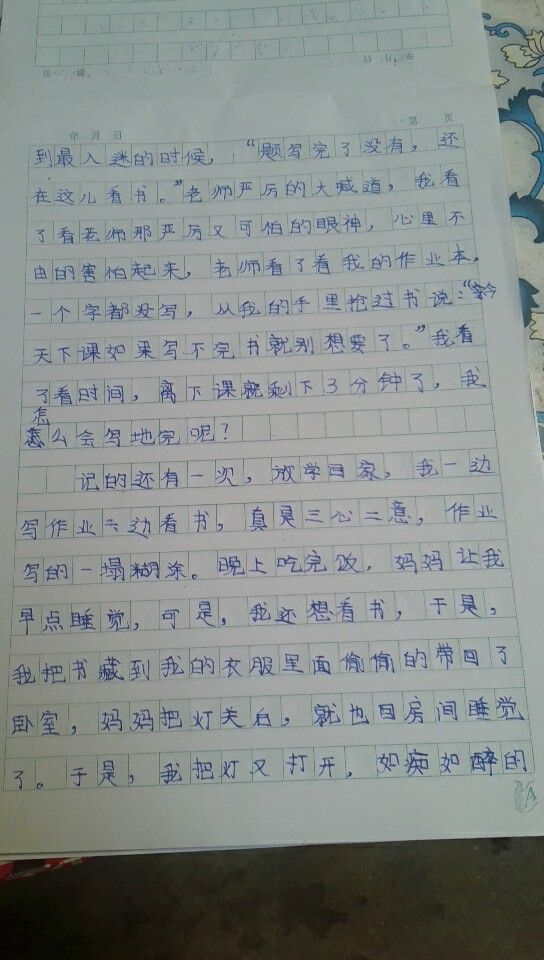 年 月 日
第 页
到最入迷的时候，“题写完了没有，还
在这儿看书。”老师严厉的大喊道，我看
了看老师那严厉又可怕的眼神，心里不
由的害怕起来，老师看了看我的作业本，
一个字都没写，从我的手里抢过书说：“今
天下课如果写不完书就别想要了。”我看
了看时间，离下课就剩下3分钟了，我
怎么会写地完呢？
记的还有一次，放学回家，我一边
写作业一边看书，真是三心二意，作业
写的一塌糊涂。晚上吃完饭，妈妈让我
早点睡觉，可是，我还想看书，于是，
我把书藏到我的衣服里面偷偷的带回了
卧室，妈妈把灯关右，就也回房间睡觉
了。于是，我把灯又打开，如痴如醉的